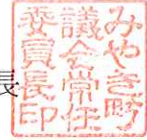 長
みやき町
議会常任
委員長印